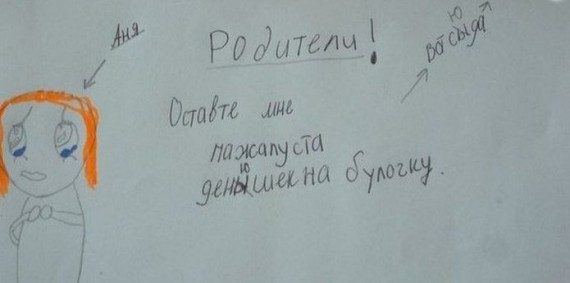 Аня
Родители!
вот сюда
Оставте мне
пажалуста
денюшек на булочку.